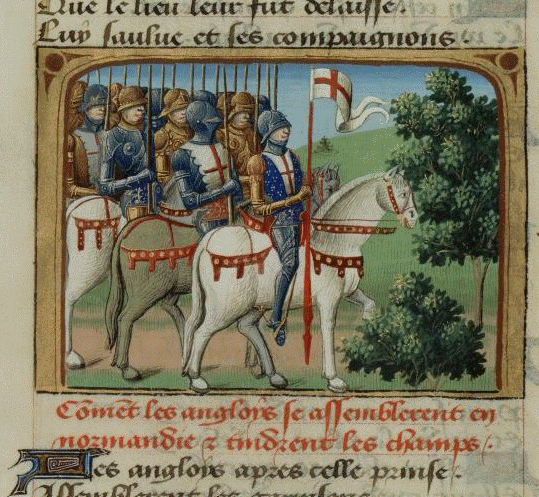 Que le lieu leur fut delaisse.
Luy saulue et ses compaignons.
Cōmēt les anglois se assemblerent en
normandie & tindrent les champs.
Les anglois apres celle prinse.
Assemblerent les